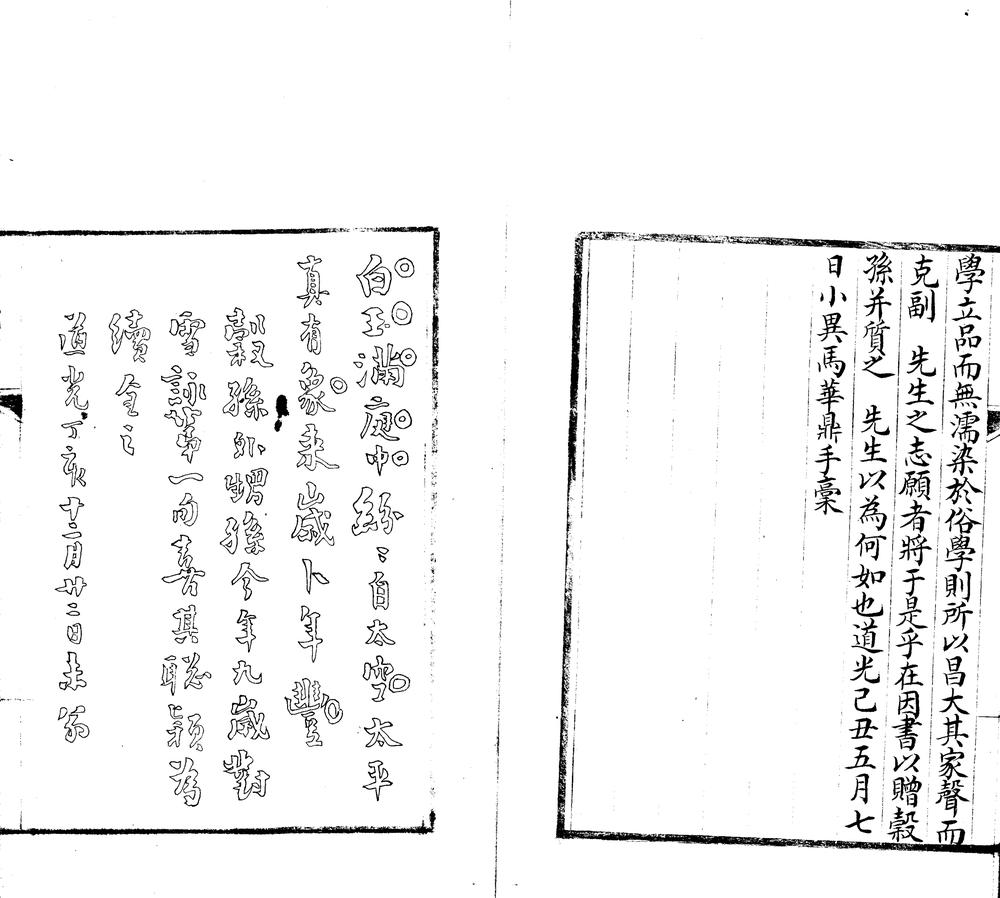 學立品而無濡染於俗學則所以昌大其家聲而
克副　先生之志願者將于是乎在因書以贈穀
孫并質之　先生以為何如也道光己丑五月七
日小異馬華鼎手稾
白玉滿庭中紛〻自太空太平
真有象未歲卜年豐
穀孫外甥孫今年九歲對
雪詠第一句喜其聪穎為
續全之
道光丁亥十二月廿二日未翁